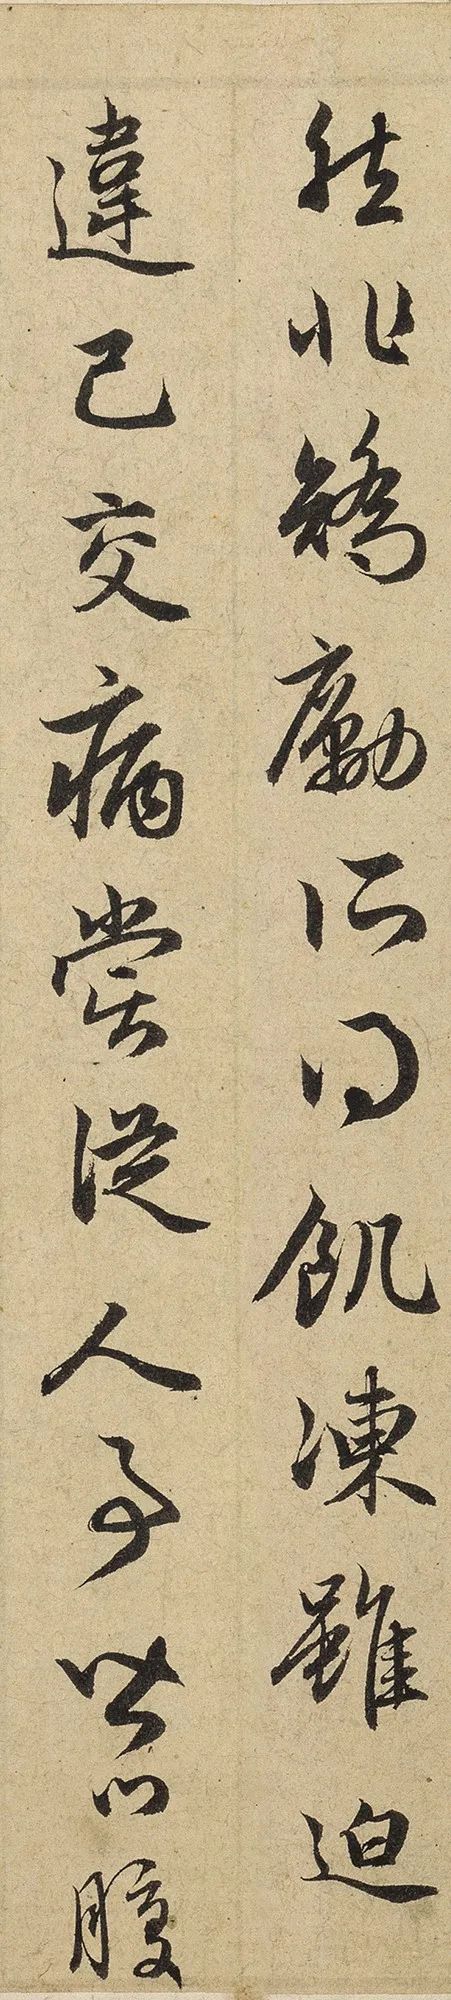 然非矯勵所得飢凍雖迫
違己交病嘗從人事皆口腹